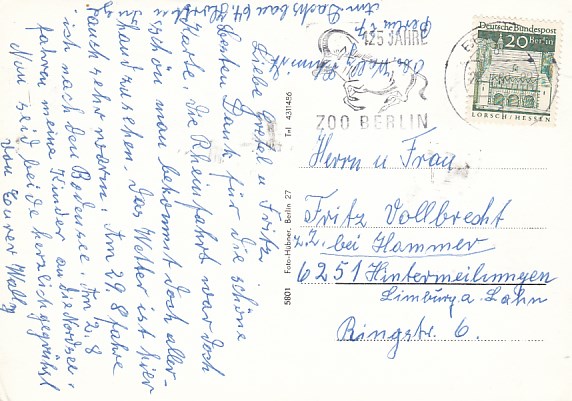 Liebe Gretel u Fritz
Besten Dank für die schöne
Karte, die Rheinfahrt war doch
schön man bekommt doch aller-
hand zusehen. Das Wetter ist hier
auch sehr warm. Am 29.8 fahre
ich nach den Bodensee. Am 2.8
fahren meine Kinder an die Nordsee.
Nun seid beide herzlich gegrüßt
von Eurer Wally
Berlin 27
125 JAHRE
ZOO BERLIN
Deutsche Bundespost
20 Berlin
LORSCH/HESSEN
5801 Foto-Hübner, Berlin 27 Tel 4311456
Herrn u Frau
Fritz Vollbrecht
z.Z. bei Hammer
6251 Hintermeilingen
Limburg a. Lahn
Ringstr. 6.